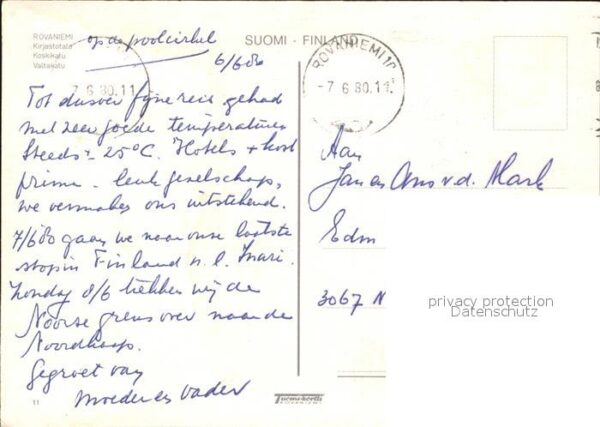 ROVANIEMI
Kirjastotalo
Koskikatu
Valtakatu
op de poolcirkel
6/6 80
SUOMI - FINLAND
ROVANIEMI 10
-7 6 80.11
7 6 80.11
Tot dusver fijne reis gehad
met zeer goede temperaturen
Steeds ± 25°C. Hotels + kost
prima. leuk gezelschap,
we vermaken ons uitstekend.
7/6 80 gaan we naar onze laatste
stop in Finland n.l. Inari.
Zondag 8/6 trekken wij de
Noorse grens over naar de
Noordkaap.
Gegroet van
Moeder en Vader
Aan
Jan en Ans v.d. Mark
Edm
3067 N
privacy protection
Datenschutz
11